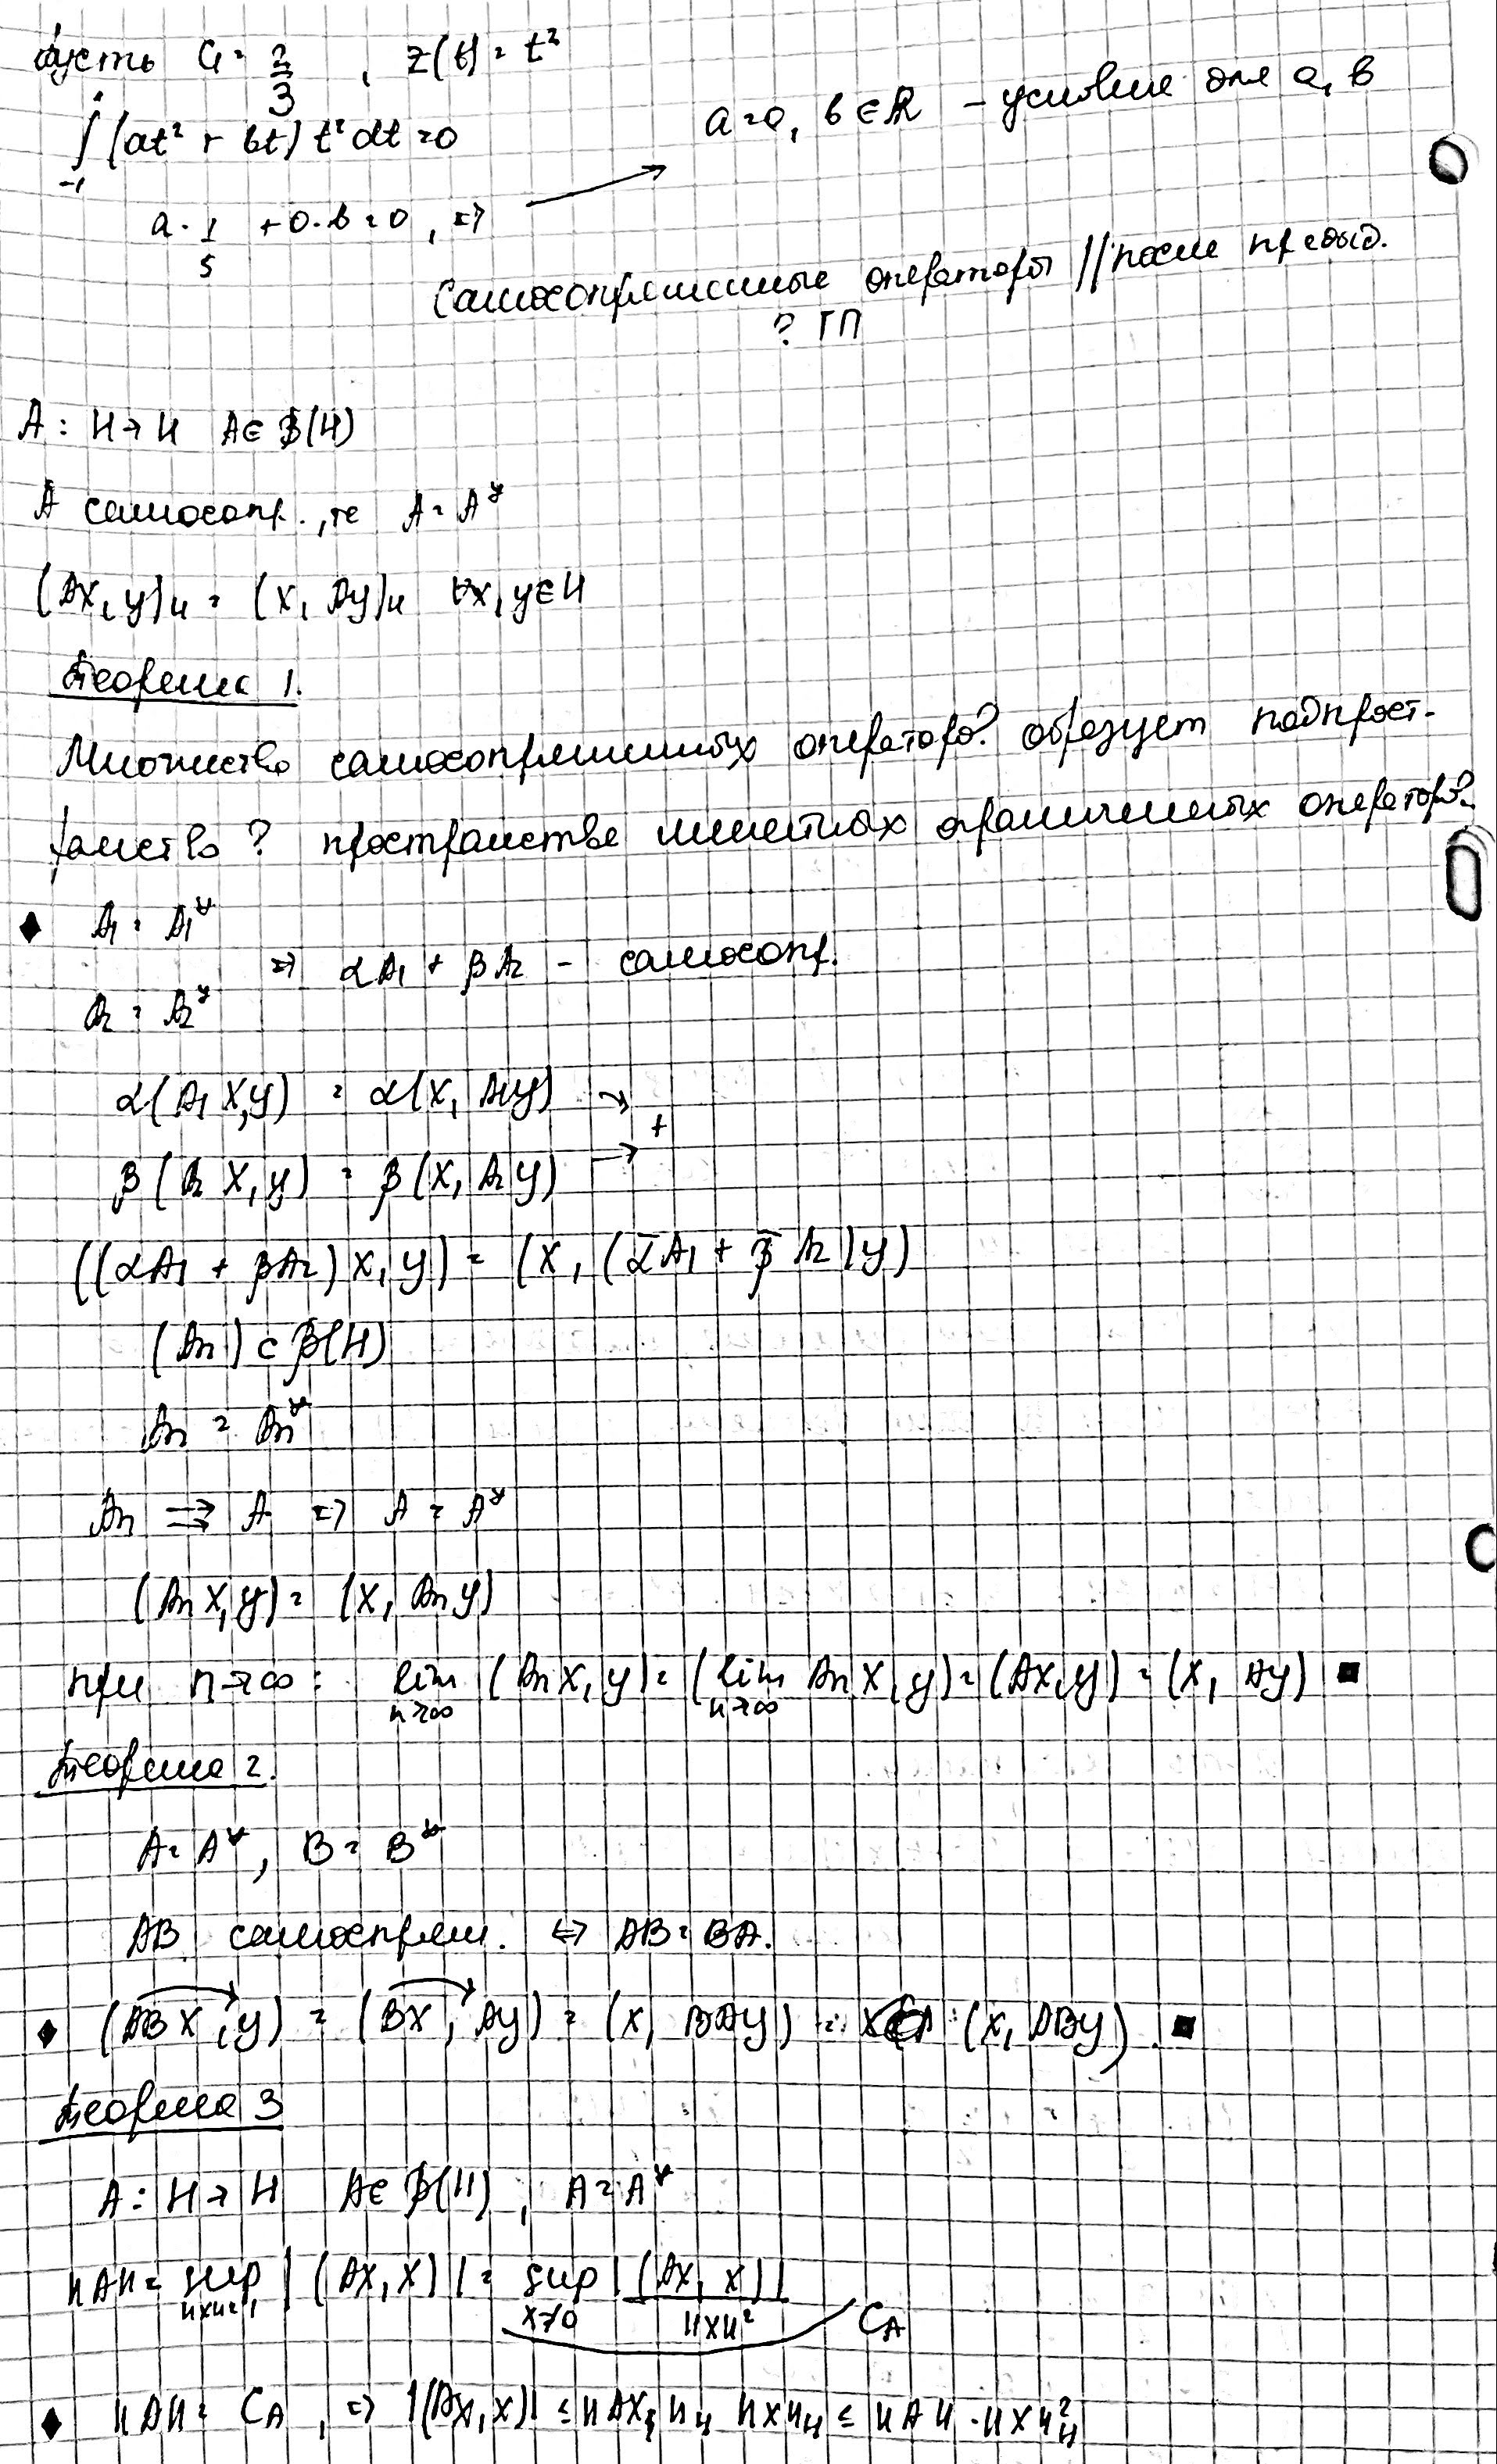 Пусть a = 2/3, z(t) = t²
∫₋₁¹ (at² + bt) t² dt = 0
a · 1/5 + 0 · b = 0, ⇒ → a = 0, b ∈ R – условие для a, b
Самосопряженные операторы // после предыд.
? ГП
A : H → H A ∈ B(H)
A самосопр., те A = A*
(Ax, y)_H = (x, Ay)_H ∀x, y ∈ H
Теорема 1.
Множество самосопряженных операторо? образует подпрост-
ранство ? пространстве линейных ограниченных операторо?.
♦ A₁ = A₁*
⇒ αA₁ + βA₂ – самосопр.
A₂ = A₂*
α(A₁x, y) = α(x, A₁y) →
+
β(A₂x, y) = β(x, A₂y) →
((αA₁ + βA₂)x, y) = (x, (ᾱA₁ + β̄A₂)y)
(An) ⊂ B(H)
An = An*
An ⇉ A ⇒ A = A*
(An x, y) = (x, An y)
при n → ∞ : lim_{n→∞} (An x, y) = (lim_{n→∞} An x, y) = (Ax, y) = (x, Ay) ■
Теорема 2.
A = A*, B = B*
AB самоспряж. ⇔ AB = BA.
♦ (ABx, y) = (Bx, Ay) = (x, BAy) = (x, ABy). ■
Теорема 3
A : H → H A ∈ B(H), A = A*
‖A‖ = sup_{‖x‖=1} |(Ax, x)| = sup_{x≠0} |(Ax, x)| / ‖x‖² C_A
♦ ‖A‖ = C_A, ⇒ |(Ax, x)| ≤ ‖Ax‖_H ‖x‖_H ≤ ‖A‖ · ‖x‖²_H